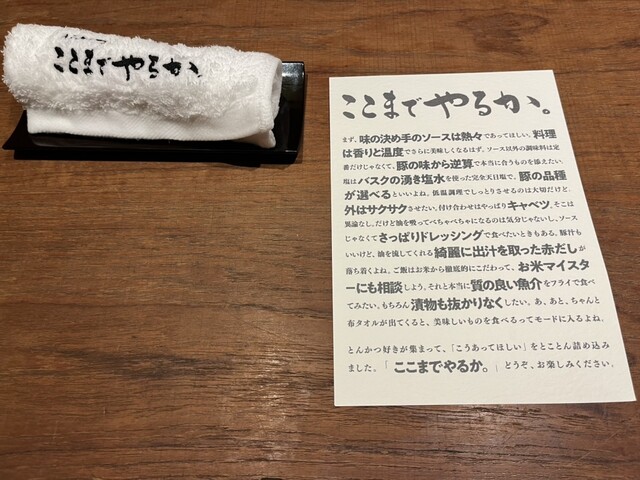 ここまでやるか
ここまでやるか。
まず、味の決め手のソースは熱々であってほしい。料理
は香りと温度でさらに美味しくなるはず。ソース以外の調味料は定
番だけじゃなくて、豚の味から逆算で本当に合うものを添えたい。
塩はバスクの湧き塩水を使った完全天日塩で。豚の品種
が選べるといいよね。低温調理でしっとりさせるのは大切だけど、
外はサクサクさせたい。付け合わせはやっぱりキャベツ。そこは
異論なし。だけど油を吸ってべちゃべちゃになるのは気分じゃないし、ソース
じゃなくてさっぱりドレッシングで食べたいときもある。豚汁も
いいけど、油を流してくれる綺麗に出汁を取った赤だしが
落ち着くよね。ご飯はお米から徹底的にこだわって、お米マイスタ
ーにも相談しよう。それと本当に質の良い魚介をフライで食べ
てみたい。もちろん漬物も抜かりなくしたい。あ、あと、ちゃんと
布タオルが出てくると、美味しいものを食べるってモードに入るよね。
とんかつ好きが集まって、「こうあってほしい」をとことん詰め込み
ました。「ここまでやるか。」どうぞ、お楽しみください。